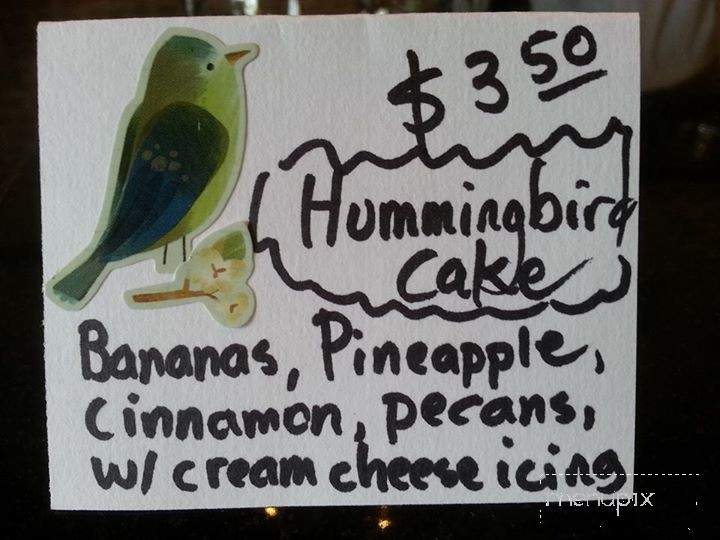 $3.50
Hummingbird
Cake
Bananas, Pineapple,
cinnamon, pecans,
w/ cream cheese icing
menupix